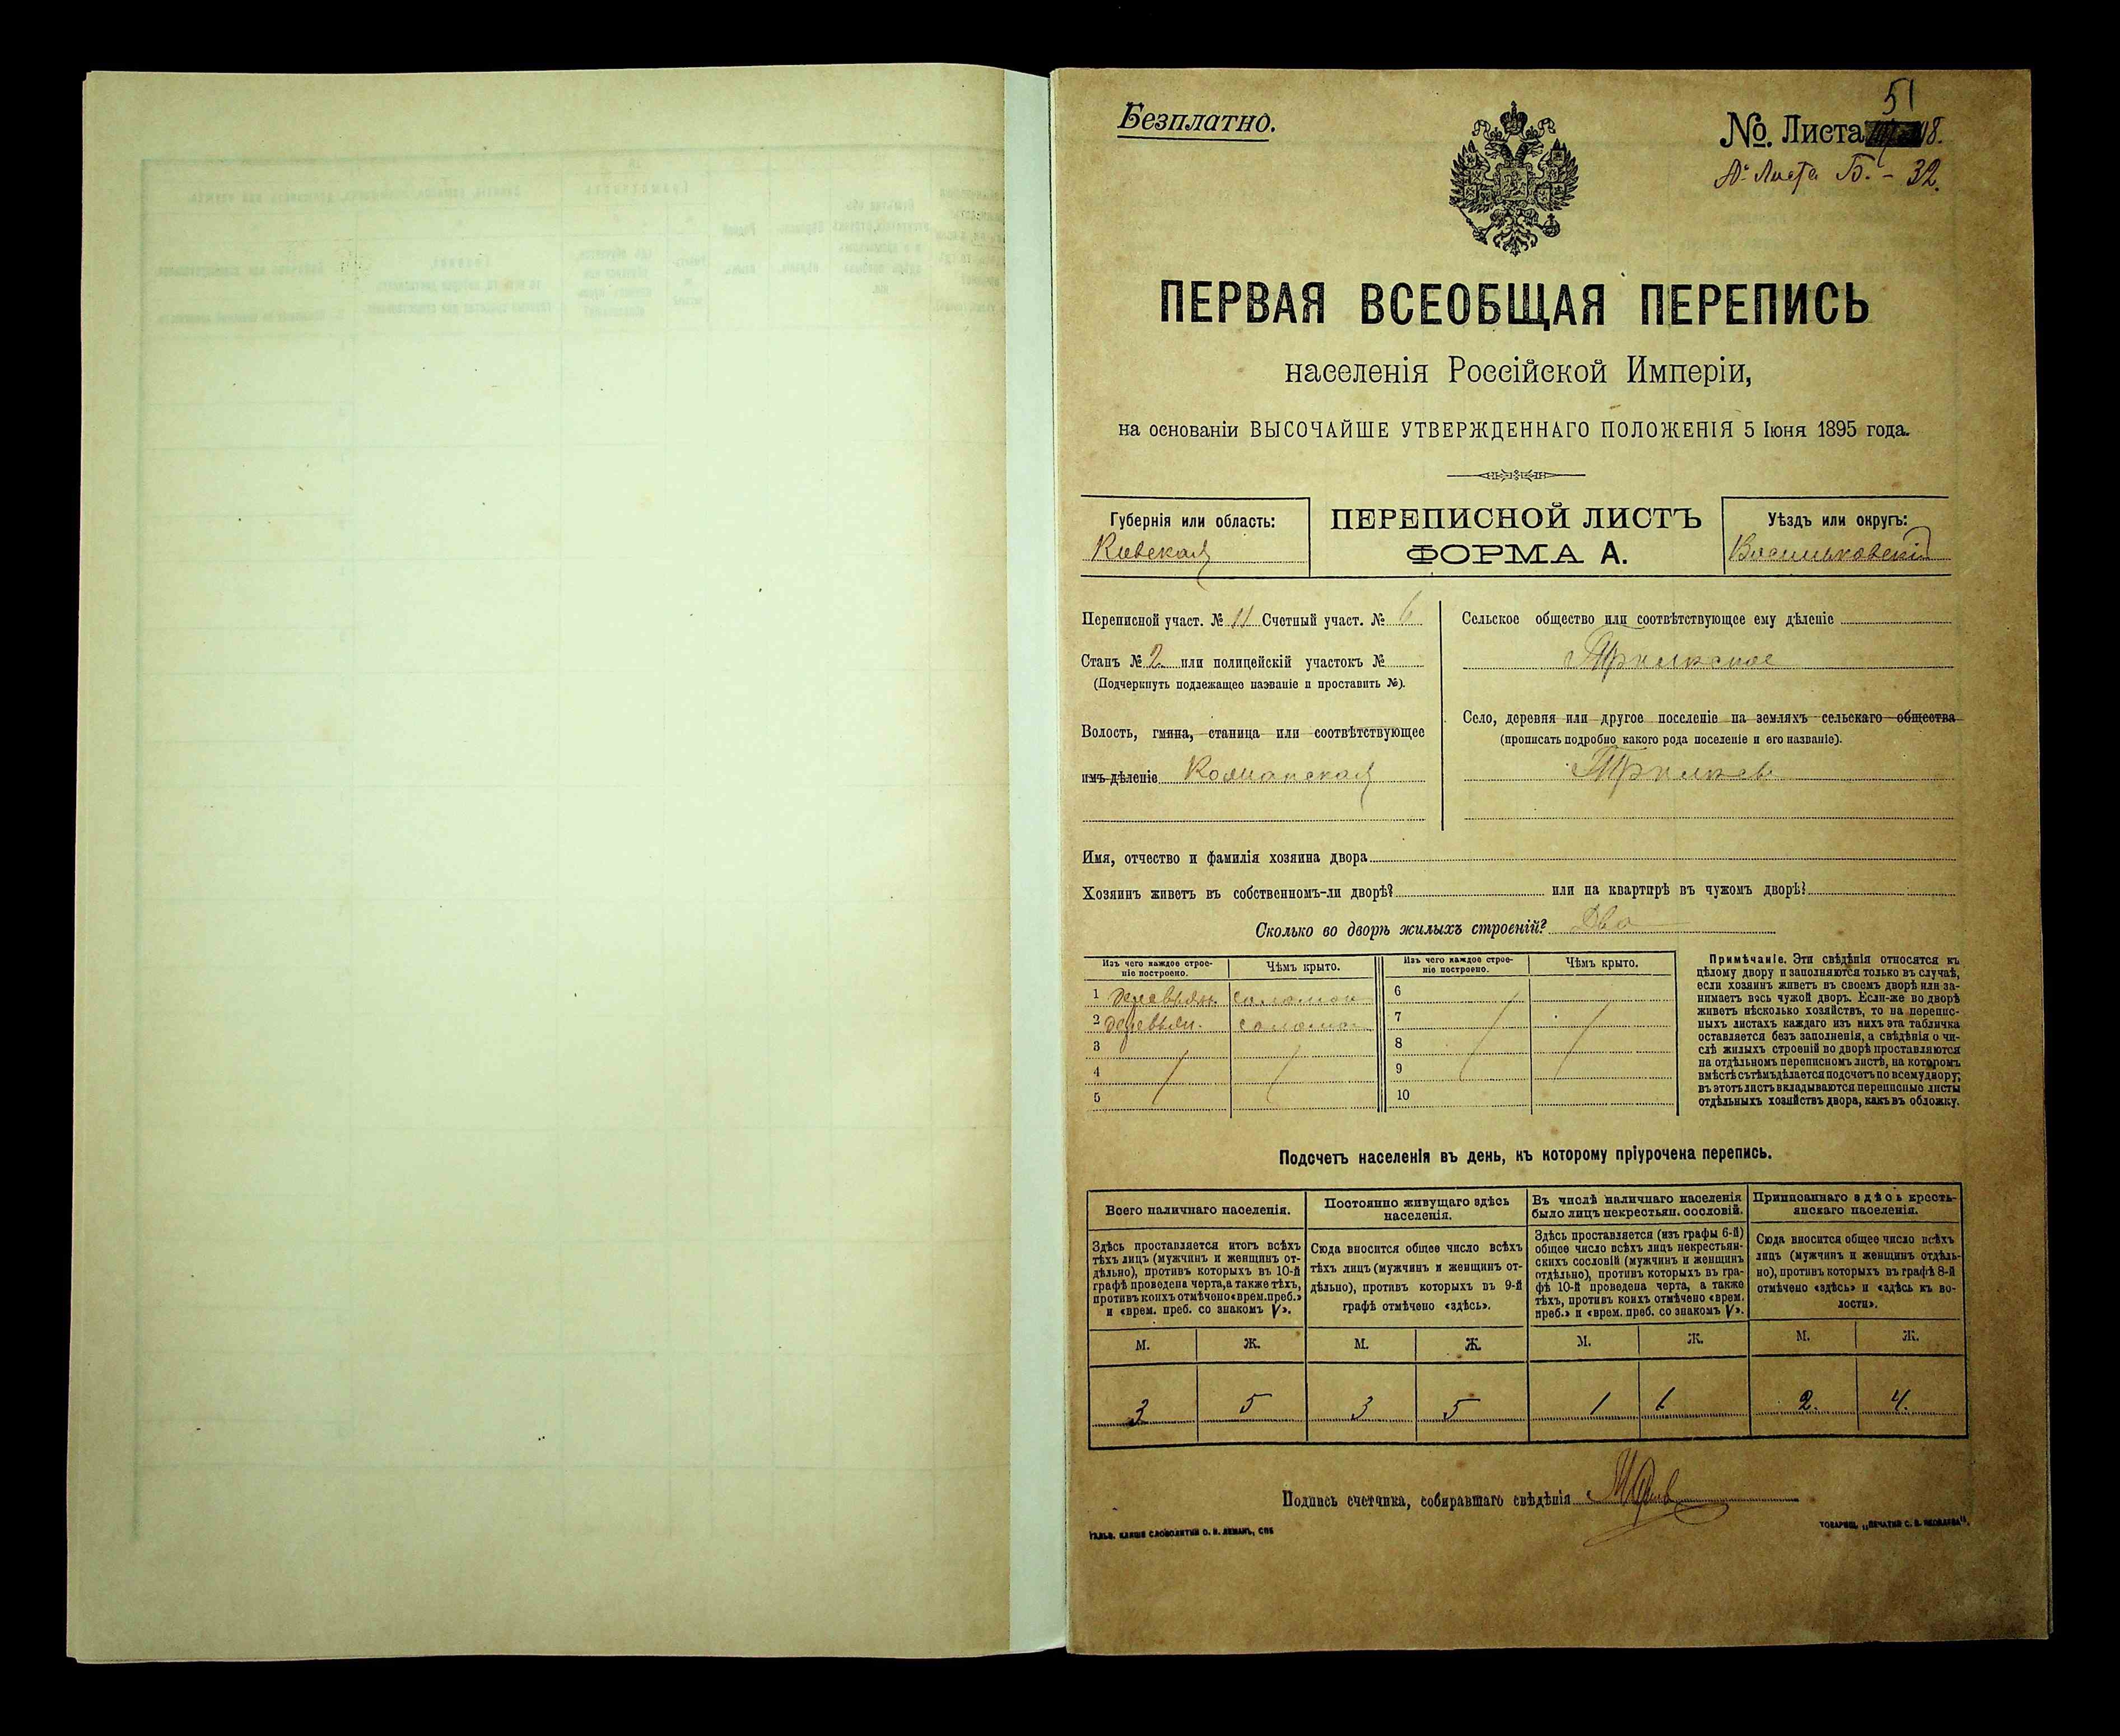 Безплатно.
51
№. Листа 118.
№ Листа Б. - 32.
ПЕРВАЯ ВСЕОБЩАЯ ПЕРЕПИСЬ
населенія Россійской Имперіи,
на основаніи ВЫСОЧАЙШЕ УТВЕРЖДЕННАГО ПОЛОЖЕНІЯ 5 Іюня 1895 года.
Губернія или область:
Кіевская
ПЕРЕПИСНОЙ ЛИСТЪ
ФОРМА А.
Уѣздъ или округъ:
Васильковскій
Переписной участ. № 11 Счетный участ. № 6
Станъ № 2 или полицейскій участокъ №
(Подчеркнуть подлежащее названіе и проставить №).
Волость, гмина, станица или соотвѣтствующее
имъ дѣленіе
Сельское общество или соотвѣтствующее ему дѣленіе
Село, деревня или другое поселеніе на земляхъ сельскаго общества
(прописать подробно какого рода поселеніе и его названіе).
Имя, отчество и фамилія хозяина двора
Хозяинъ живетъ въ собственномъ-ли дворѣ? или на квартирѣ въ чужомъ дворѣ?
Сколько во дворѣ жилыхъ строеній? Два
Изъ чего каждое строе-
ніе построено.
Чѣмъ крыто.
Изъ чего каждое строе-
ніе построено.
Чѣмъ крыто.
1 деревян. соломою
2 деревян. солом.
3
4
5
6
7
8
9
10
Примѣчаніе. Эти свѣдѣнія относятся къ
цѣлому двору и заполняются только въ случаѣ,
если хозяинъ живетъ въ своемъ дворѣ или за-
нимаетъ весь чужой дворъ. Если-же во дворѣ
живетъ нѣсколько хозяйствъ, то на перепис-
ныхъ листахъ каждаго изъ нихъ эта табличка
оставляется безъ заполненія, а свѣдѣнія о чи-
слѣ жилыхъ строеній во дворѣ проставляются
на отдѣльномъ переписномъ листѣ, на которомъ
вмѣстѣ съ тѣмъ дѣлается подсчетъ по всему двору;
въ этотъ листъ вкладываются переписные листы
отдѣльныхъ хозяйствъ двора, какъ въ обложку.
Подсчетъ населенія въ день, къ которому пріурочена перепись.
Всего наличнаго населенія.
Постоянно живущаго здѣсь
населенія.
Въ числѣ наличнаго населенія
было лицъ некрестьян. сословій.
Приписаннаго здѣсь кресть-
янскаго населенія.
Здѣсь проставляется итогъ всѣхъ
тѣхъ лицъ (мужчинъ и женщинъ от-
дѣльно), противъ которыхъ въ 10-й
графѣ проведена черта, а также тѣхъ,
противъ коихъ отмѣчено «врем. преб.»
и «врем. преб. со знакомъ V».
Сюда вносится общее число всѣхъ
тѣхъ лицъ (мужчинъ и женщинъ от-
дѣльно), противъ которыхъ въ 9-й
графѣ отмѣчено «здѣсь».
Здѣсь проставляется (изъ графы 6-й)
общее число всѣхъ лицъ некрестьян-
скихъ сословій (мужчинъ и женщинъ
отдѣльно), противъ которыхъ въ гра-
фѣ 10-й проведена черта, а также
тѣхъ, противъ коихъ отмѣчено «врем.
преб.» и «врем. преб. со знакомъ V».
Сюда вносится общее число всѣхъ
лицъ (мужчинъ и женщинъ отдѣль-
но), противъ которыхъ въ графѣ 8-й
отмѣчено «здѣсь» и «здѣсь къ во-
лости».
М. Ж. М. Ж. М. Ж. М. Ж.
3 5 3 5 1 1 2. 4.
Подпись счетчика, собиравшаго свѣдѣнія
ГАЛЬВ. КЛИШЕ СЛОВОЛИТНИ О. И. ЛЕМАНЪ, СПБ
ТОВАРИЩ. „ПЕЧАТНЯ С. П. ЯКОВЛЕВА".